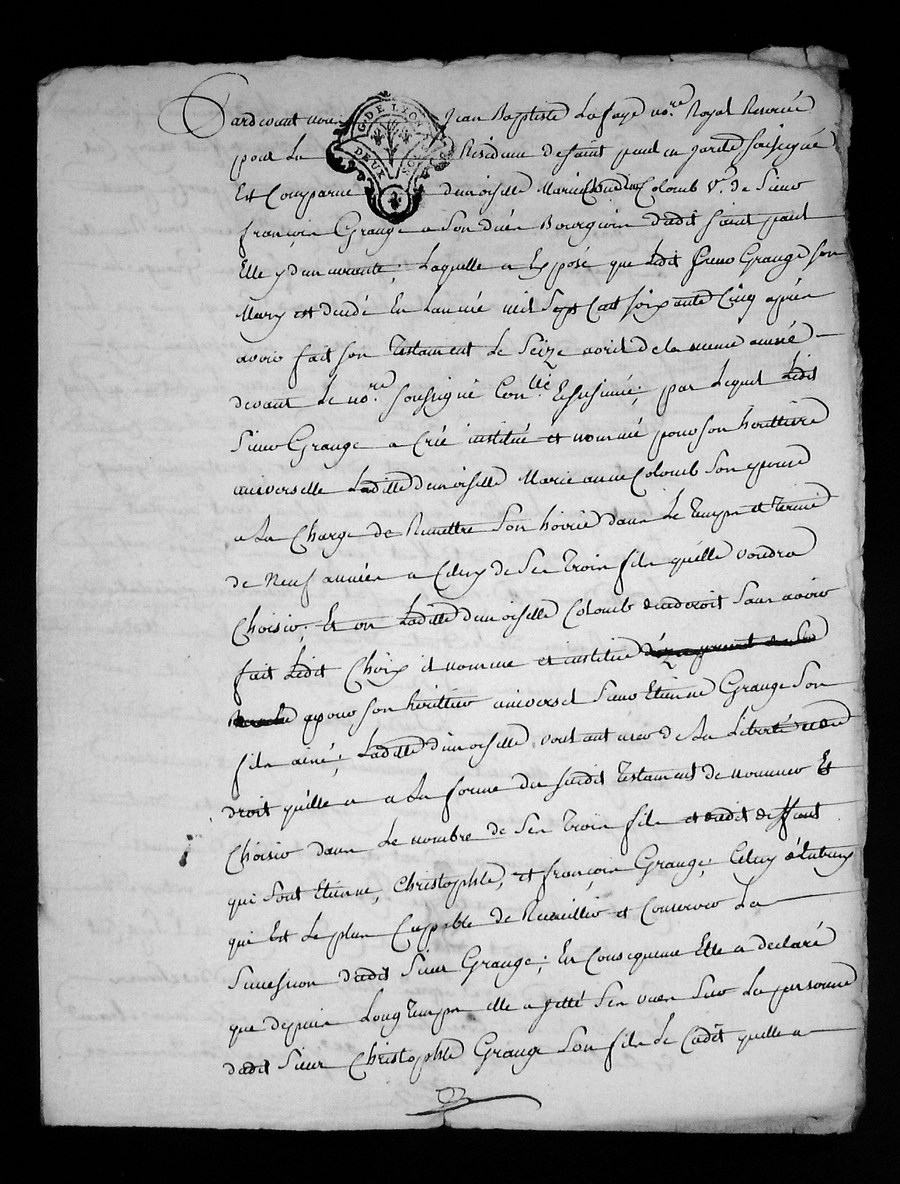 Pardevant nous Jean Baptiste Lafaye no.re Royal Reservé
G. DE LYON
DEUX SOLS
pour La Residence de saint paul en Jarêt soussigné
Est Comparue demoiselle Marie Colomb V.e de Sieur
françois Grange a Son decés Bourgeois dudit saint paul
Elle y demeurante; Laquelle a Exposé que Ledit Sieur Grange son
Mary est decedé En Lannée mil Sept Cent soixante Cinq aprés
avoir fait son Testament Le Seize avril de la meme année
devant Le no.re soussigné Con.llé Et Insinué; par Lequel Ledit
Sieur Grange a Créé institué et nommé pour son herittiere
universelle Laditte demoiselle Marie anne Colomb Son epouse
a La Charge de Remettre Son hoirie dans Le Temps et terme
de Neuf années a Celuy de Ses Trois fils qu'elle voudra
Choisir; Et ou Laditte demoiselle Colomb decederoit Sans avoir
fait Ledit Choix il nomme et institue
pour son herittier universel Sieur Etienne Grange Son
fils ainé; Laditte demoiselle voulant user de La Liberté et du
droit qu'elle a a La forme du susdit Testament de nommer Et
Choisir dans Le nombre de Ses Trois fils et dudit deffunt
qui sont Etienne, Christophle, et françois Grange; Celuy d'entreux
qui Est Le plus Capable de Recueillir et Conserver La
Succession dudit Sieur Grange; En Consequence Elle a declaré
que depuis Long Temps elle a jetté Ses vues Sur La personne
dudit Sieur Christophle Grange Son fils Le Cadet qu'elle a